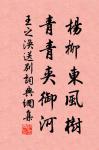 楊柳東風樹
青青夾御河
王之渙送別詞典網集